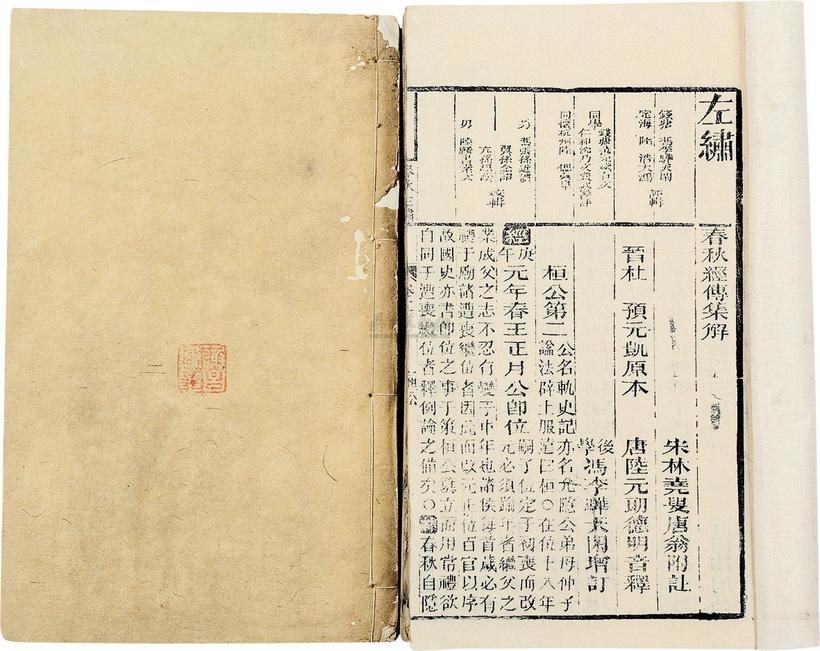 左繡
錢塘 馮李驊天閑
定海 陸 浩大瀛 評輯
同學 錢塘
仁和
同懷杭州陸 偲
男 馮張孫近潢
翼孫念詒
左孫昆
校輯
男 陸麟書素文
春秋經傳集解
宋林堯叟唐翁附註
晉杜 預元凱原本 唐陸元朗德明音釋
後學馮李驊天閑增訂
桓公第二 公名軌史記亦名允隱公弟母仲子
謚法辟土服遠曰桓○在位十八年
經 庚午 元年春王正月公卽位 嗣子位定于初喪而改
元必須踰年者繼父之
業成父之志不忍有變于中年也諸侯每首歲必有
禮于廟諸遭喪繼位者因此而改元正位百官以序
故國史亦書卽位之事于策桓公篡立而用常禮欲
自同于遭喪繼位者釋例論之備矣○ 春秋自隱